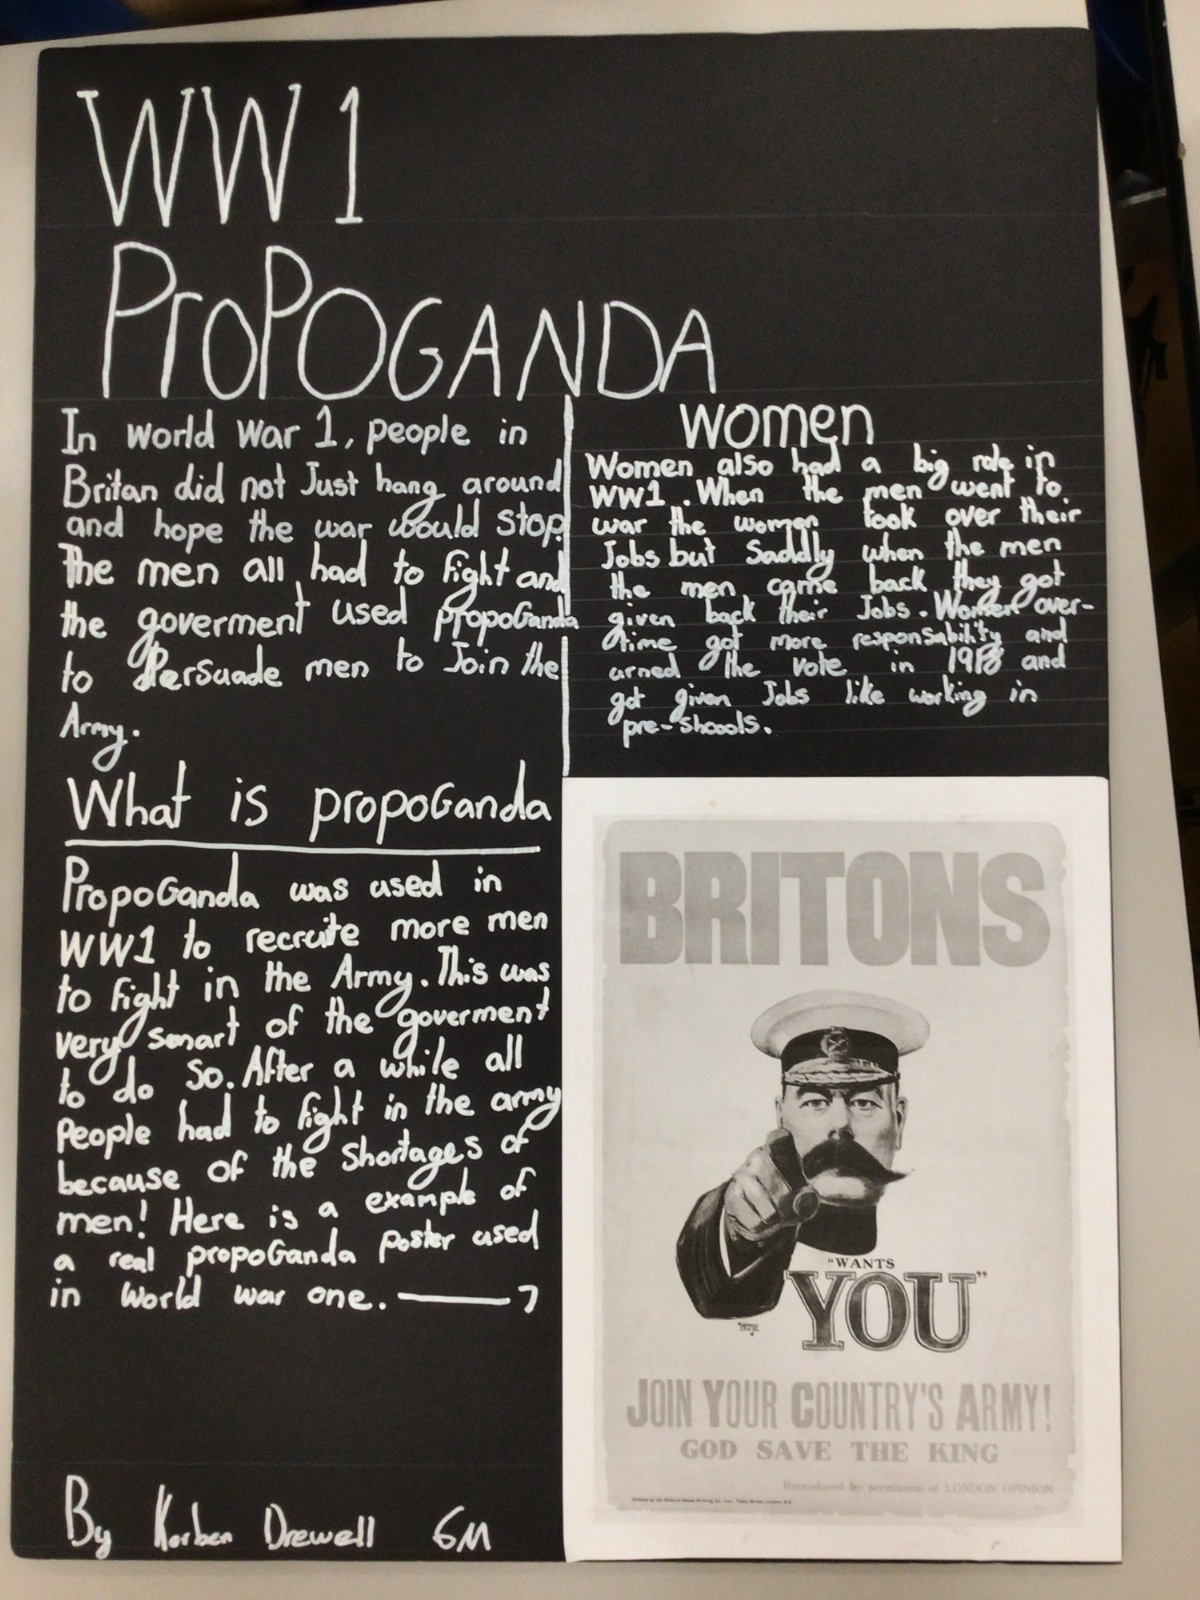 WW1
ProPOGANDA
In world War 1, people in
Britan did not Just hang around
and hope the war would stop.
The men all had to fight and
the goverment used propoGanda
to Persuade men to Join the
Army.
What is propoGanda
PropoGanda was used in
WW1 to recruite more men
to fight in the Army. This was
very smart of the goverment
to do So. After a while all
People had to fight in the army
because of the shortages of
men! Here is a example of
a real propoGanda poster used
in World war one.
By Korben Drewell 6M
women
Women also had a big role in
WW1. When the men went to
war the women took over their
Jobs but Saddly when the men
the men came back they got
given back their Jobs. Women over-
time got more responsability and
urned the vote in 1918 and
got given Jobs like working in
pre-shoools.
BRITONS
"WANTS
YOU"
JOIN YOUR COUNTRY'S ARMY!
GOD SAVE THE KING
Reproduced by permission of LONDON OPINION